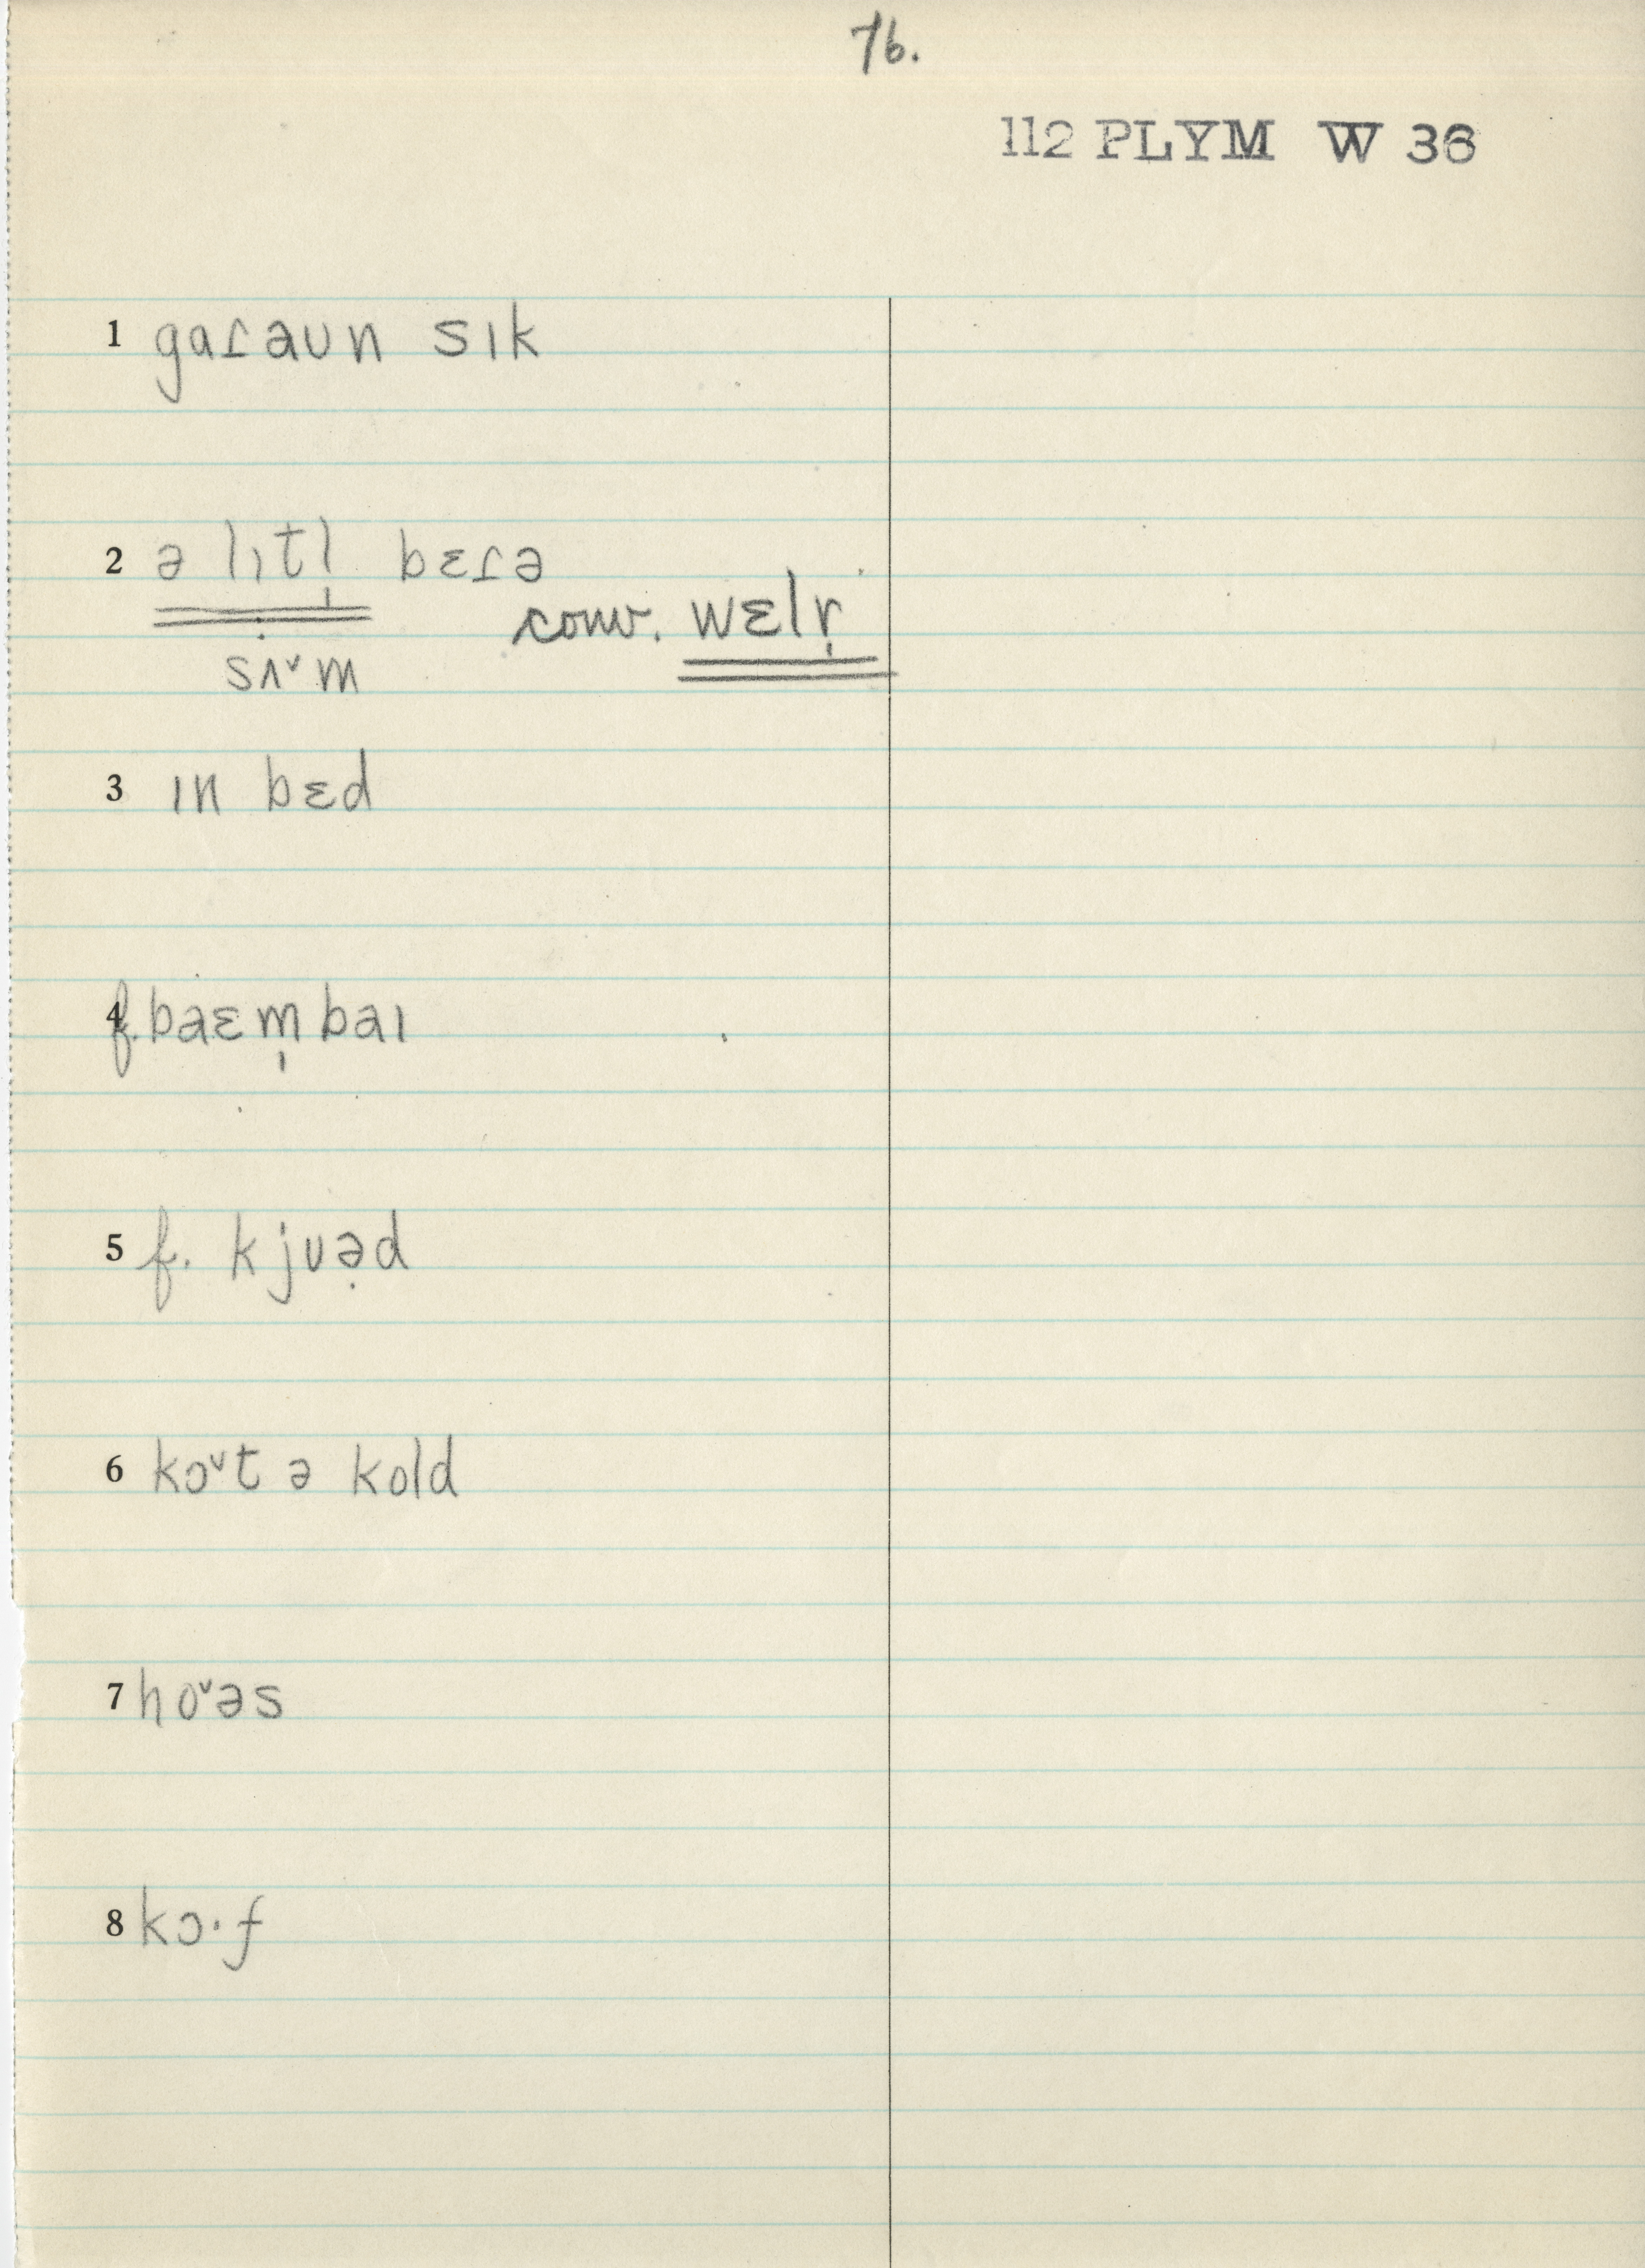 76.
112 PLYM W 36
1 gaɾaun sık
2 ə lıtl̩ bɛɾə
conv. wɛlr̩
sʌ˅m
3 ın bɛd
4 f. baɛm̩baı
5 f. kjuə̣d
6 kɔ˅t ə kold
7 ho˅əs
8 kɔ·f